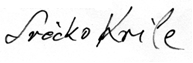 Srećko Krile